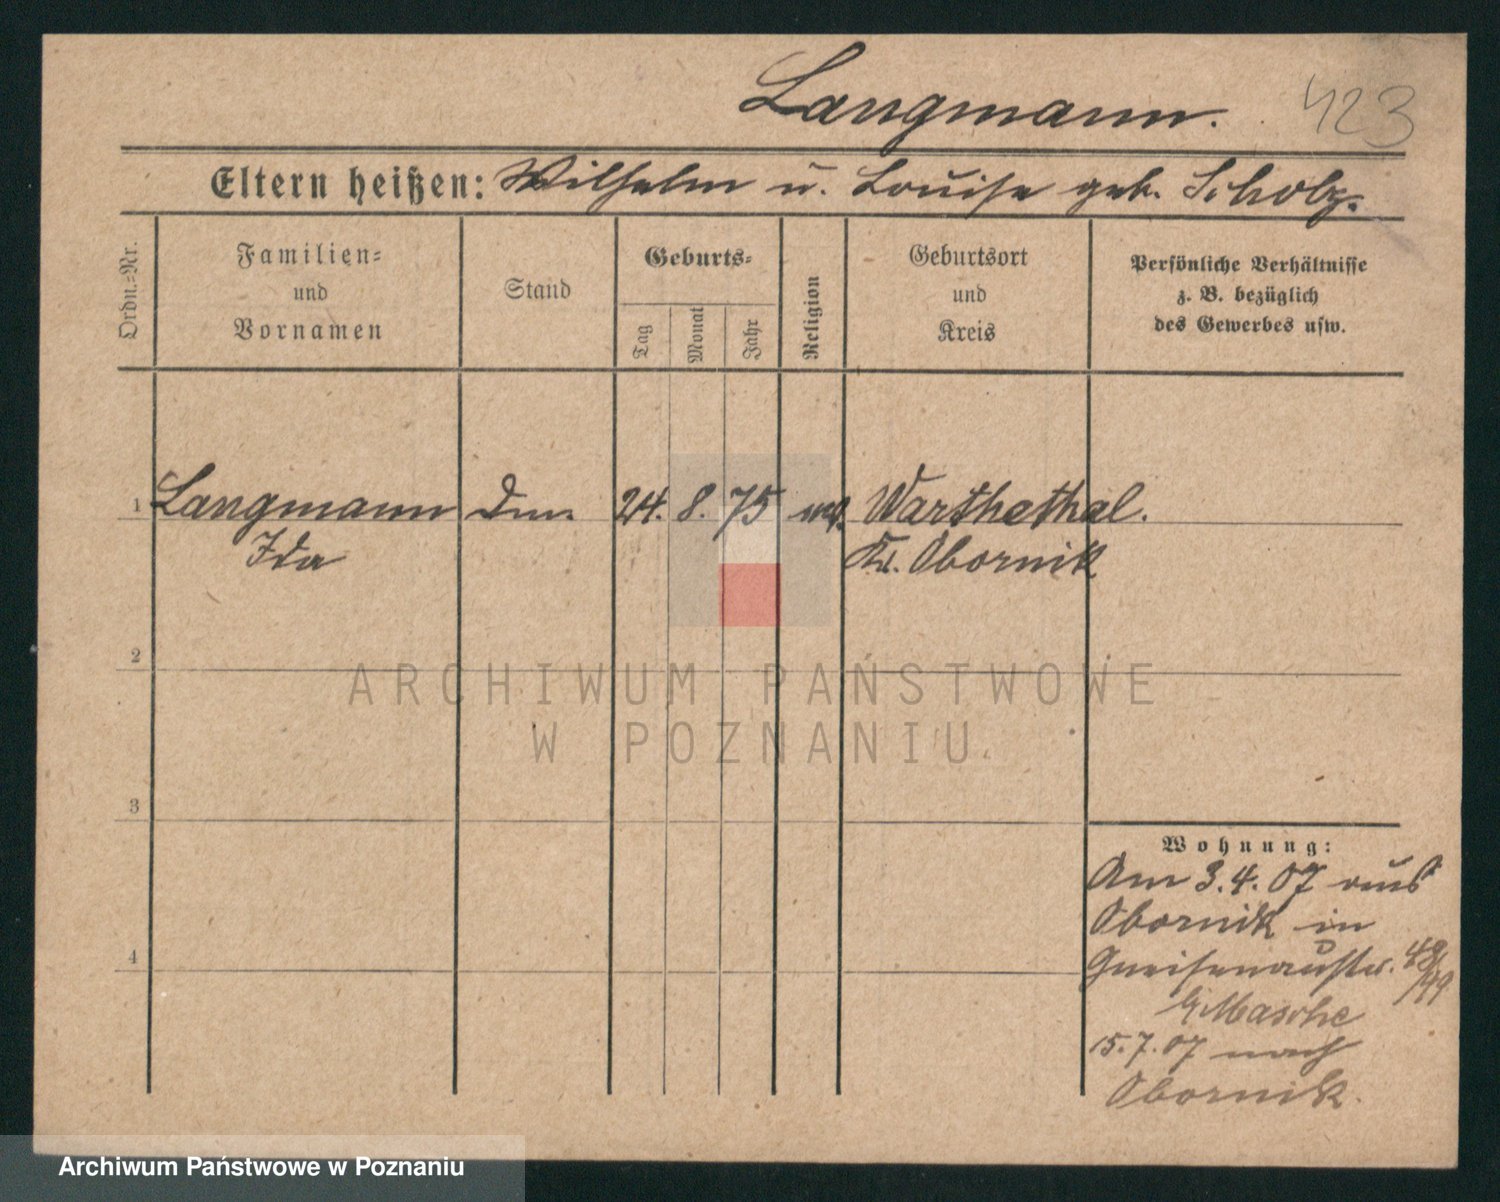 Langmann. 423
Eltern heißen: Wilhelm u. Louise geb. Scholz.
Ordn.=Nr.
Familien=
und
Vornamen
Stand
Geburts=
Tag
Monat
Jahr
Religion
Geburtsort
und
Kreis
Persönliche Verhältnisse
z. B. bezüglich
des Gewerbes usw.
1 Langmann 24. 8. 75 Warthethal.
Ida Kr. Obornik
2
3
4
Wohnung:
Am 3.4.07 aus
Obornik in
Gneisenaustr. 48/49
Masche
15.7.07 nach
Obornik.
ARCHIWUM PAŃSTWOWE
W POZNANIU
Archiwum Państwowe w Poznaniu